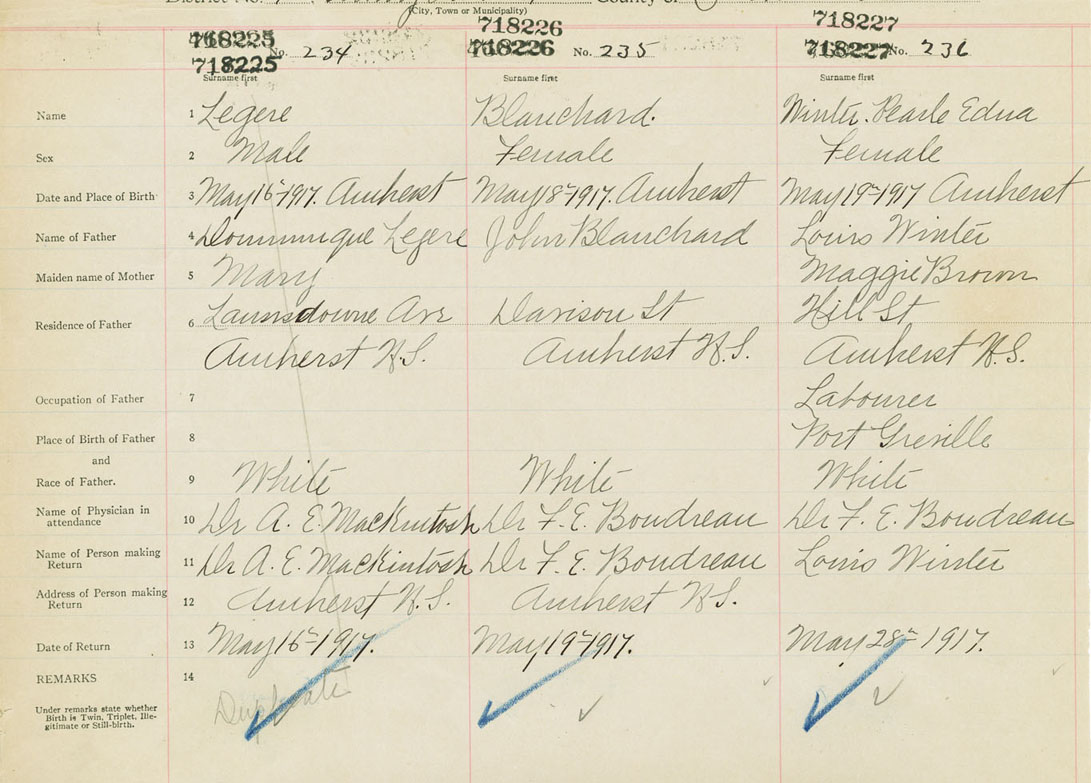 District No. County of
(City, Town or Municipality)
718225 718226 718227
718225 No. 234 718226 No. 235 718227 No. 236
718225
Surname first Surname first Surname first
Name 1 Legere Blanchard. Winter. Pearle Edna
Sex 2 Male Female Female
Date and Place of Birth 3 May 16th 1917. Amherst May 18th 1917. Amherst May 19th 1917 Amherst
Name of Father 4 Dominique Legere John Blanchard Louis Winter
Maiden name of Mother 5 Mary Maggie Brown
Residence of Father 6 Launsdowne Ave Davison St Hill St
Amherst N.S. Amherst N.S. Amherst N.S.
Occupation of Father 7 Labourer
Place of Birth of Father 8 Port Greville
and
Race of Father. 9 White White White
Name of Physician in
attendance 10 Dr A. E. MacKintosh Dr F. E. Boudreau Dr F. E. Boudreau
Name of Person making
Return 11 Dr A. E. MacKintosh Dr F. E. Boudreau Louis Winter
Address of Person making
Return 12 Amherst N.S. Amherst N.S.
Date of Return 13 May 16th 1917. May 19th 1917. May 28th 1917.
REMARKS 14
Duplicate
Under remarks state whether
Birth is Twin, Triplet, Ille-
gitimate or Still-birth.